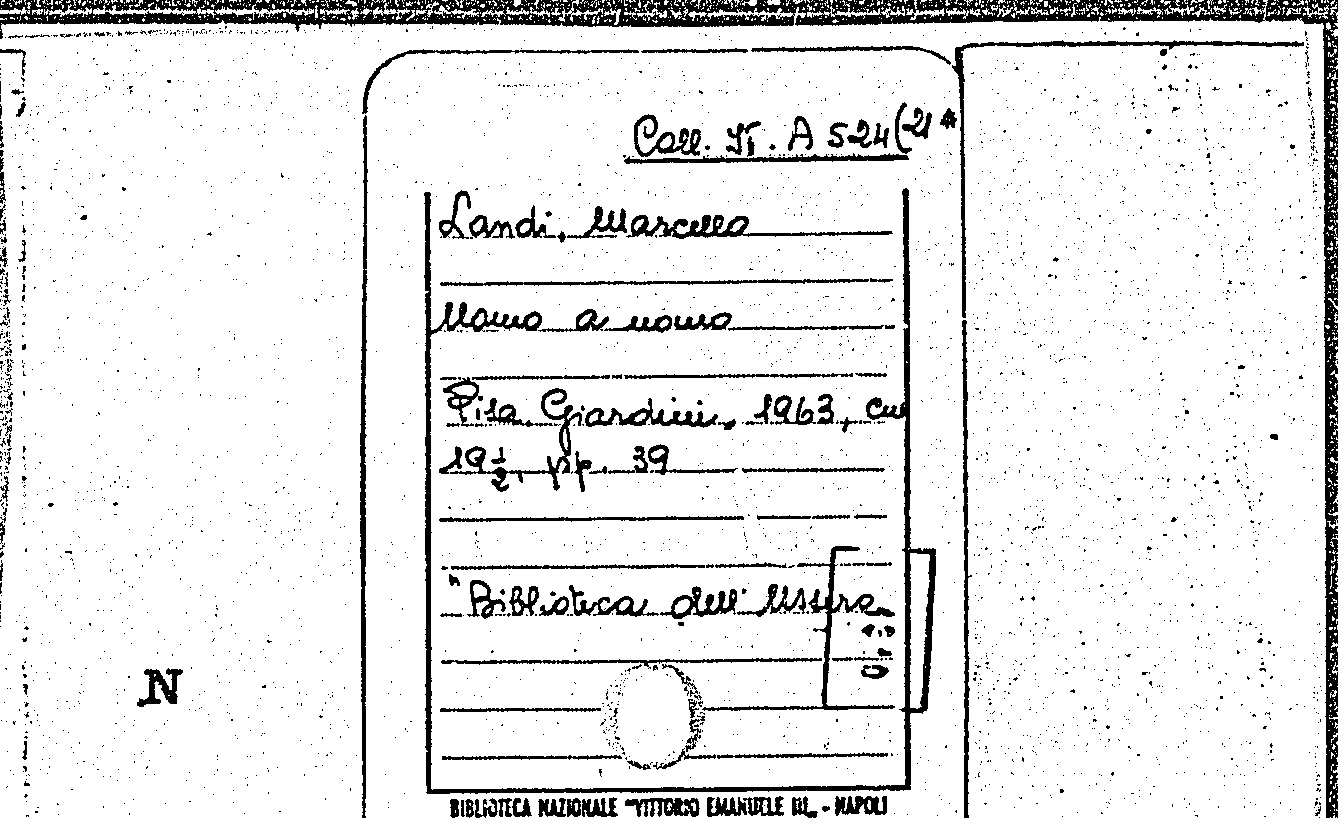 Coll. It. A 524(21*
Landi, Marcello
Uomo a uomo
Pisa. Giardini, 1963, cm
19 1/2, pp. 39
"Biblioteca dell' Ussero„
N
BIBLIOTECA NAZIONALE "VITTORIO EMANUELE III„ - NAPOLI